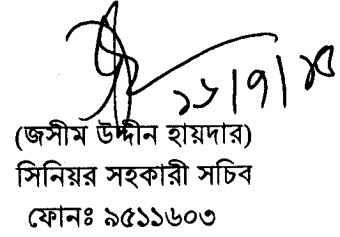 ১৬/৭/১৫
(জসীম উদ্দীন হায়দার)
সিনিয়র সহকারী সচিব
ফোনঃ ৯৫১১৬০৩